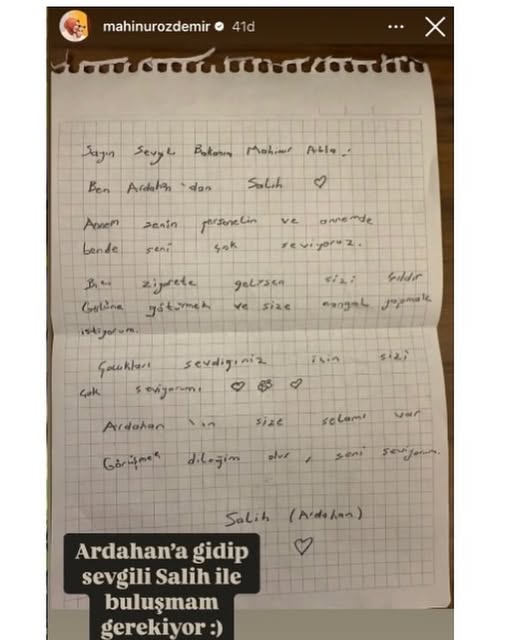 mahinurozdemir 41d
Sayın Sevgili Bakanım Mahinur Abla :
Ben Ardahan'dan Salih ♡
Annem senin personelin ve annemde
bende seni çok seviyoruz.
Bizi ziyarete gelirsen sizi Çıldır
Gölüne götürmek ve size mangal yapmak
istiyorum.
Çocukları sevdiğiniz için sizi
çok seviyorum ♡ ♡
Ardahan'ın size selamı var
Görüşmek dileğim olur, seni seviyorum.
Salih (Ardahan)
♡
Ardahan'a gidip
sevgili Salih ile
buluşmam
gerekiyor :)